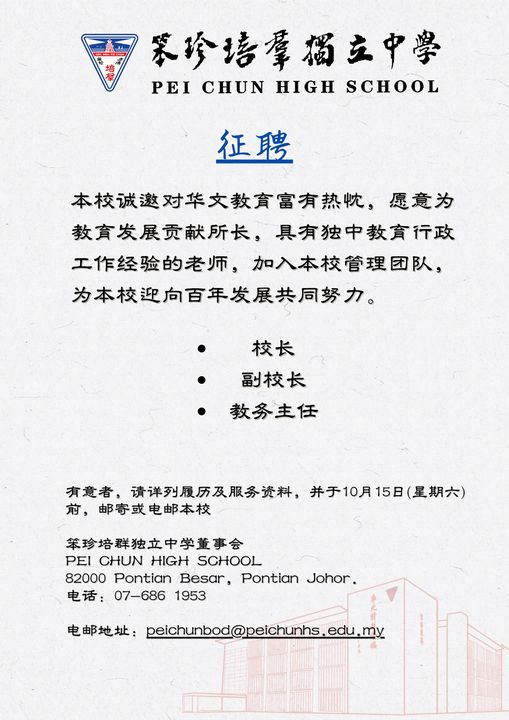 笨珍培羣獨立中學
PEI CHUN HIGH SCHOOL
征聘
本校诚邀对华文教育富有热忱，愿意为
教育发展贡献所长，具有独中教育行政
工作经验的老师，加入本校管理团队，
为本校迎向百年发展共同努力。
• 校长
• 副校长
• 教务主任
有意者，请详列履历及服务资料，并于10月15日(星期六)
前，邮寄或电邮本校
笨珍培群独立中学董事会
PEI CHUN HIGH SCHOOL
82000 Pontian Besar, Pontian Johor.
电话：07-686 1953
电邮地址：peichunbod@peichunhs.edu.my